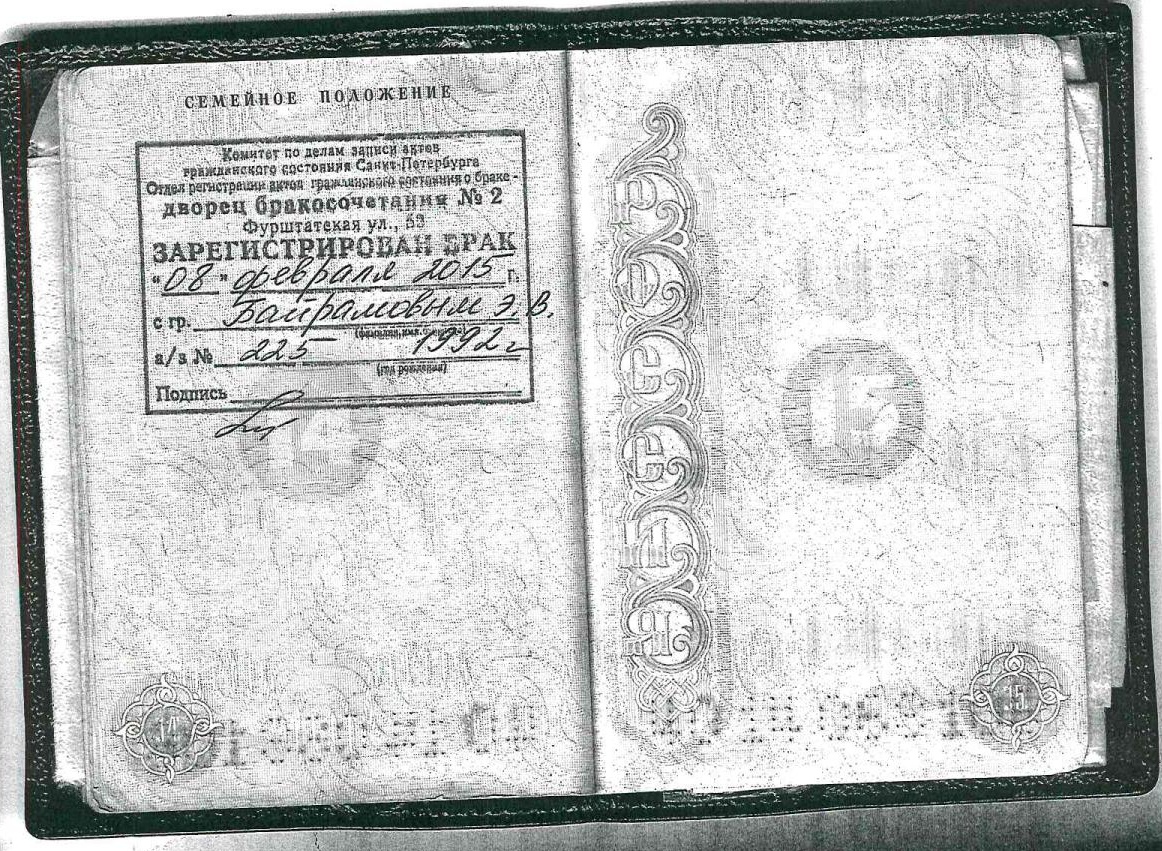 СЕМЕЙНОЕ ПОЛОЖЕНИЕ
Комитет по делам записи актов
гражданского состояния Санкт-Петербурга
Отдел регистрации актов гражданского состояния о браке -
дворец бракосочетания № 2
Фурштатская ул., 53
ЗАРЕГИСТРИРОВАН БРАК
"08" февраля 2015 г.
с гр. Байрамовым Э. В.
(фамилия, имя, отчество)
а/з № 225 1992 г
(год рождения)
Подпись
14
14
РОССИЯ
15
15